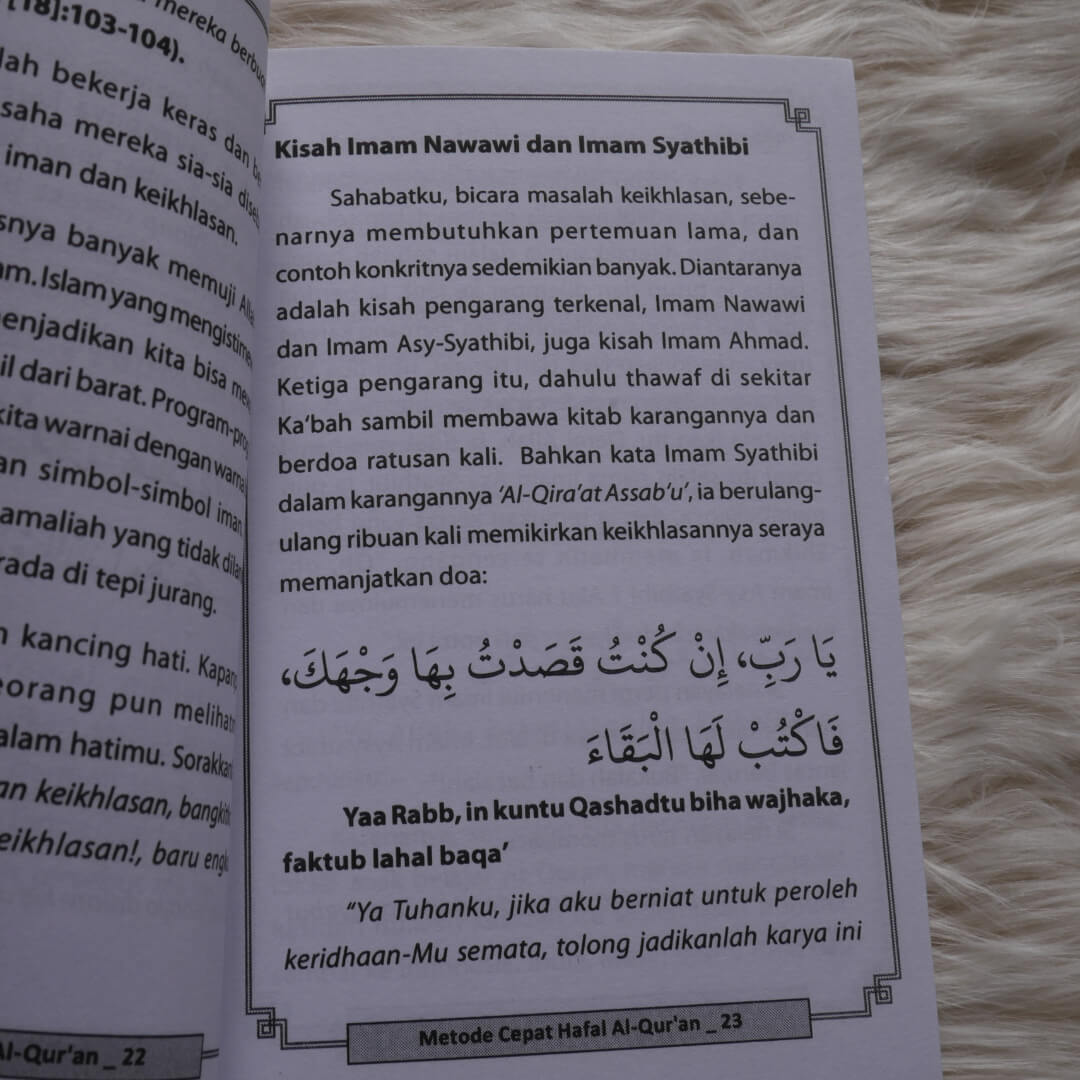 [18]:103-104).
mereka
bekerja keras dan
mereka sia-sia
iman dan keikhlasan.
banyak memuji
Islam yang
kita bisa
dari barat.
kita warnai dengan
simbol-simbol iman
amaliah yang tidak
di tepi jurang.
kancing hati.
pun
hatimu. Sorakkan
keikhlasan,
baru
Al-Qur'an _ 22
Kisah Imam Nawawi dan Imam Syathibi
Sahabatku, bicara masalah keikhlasan, sebe-
narnya membutuhkan pertemuan lama, dan
contoh konkritnya sedemikian banyak. Diantaranya
adalah kisah pengarang terkenal, Imam Nawawi
dan Imam Asy-Syathibi, juga kisah Imam Ahmad.
Ketiga pengarang itu, dahulu thawaf di sekitar
Ka'bah sambil membawa kitab karangannya dan
berdoa ratusan kali. Bahkan kata Imam Syathibi
dalam karangannya 'Al-Qira'at Assab'u', ia berulang-
ulang ribuan kali memikirkan keikhlasannya seraya
memanjatkan doa:
يَا رَبِّ، إِنْ كُنْتُ قَصَدْتُ بِهَا وَجْهَكَ،
فَاكْتُبْ لَهَا الْبَقَاءَ
Yaa Rabb, in kuntu Qashadtu biha wajhaka,
faktub lahal baqa'
"Ya Tuhanku, jika aku berniat untuk peroleh
keridhaan-Mu semata, tolong jadikanlah karya ini
Metode Cepat Hafal Al-Qur'an _ 23